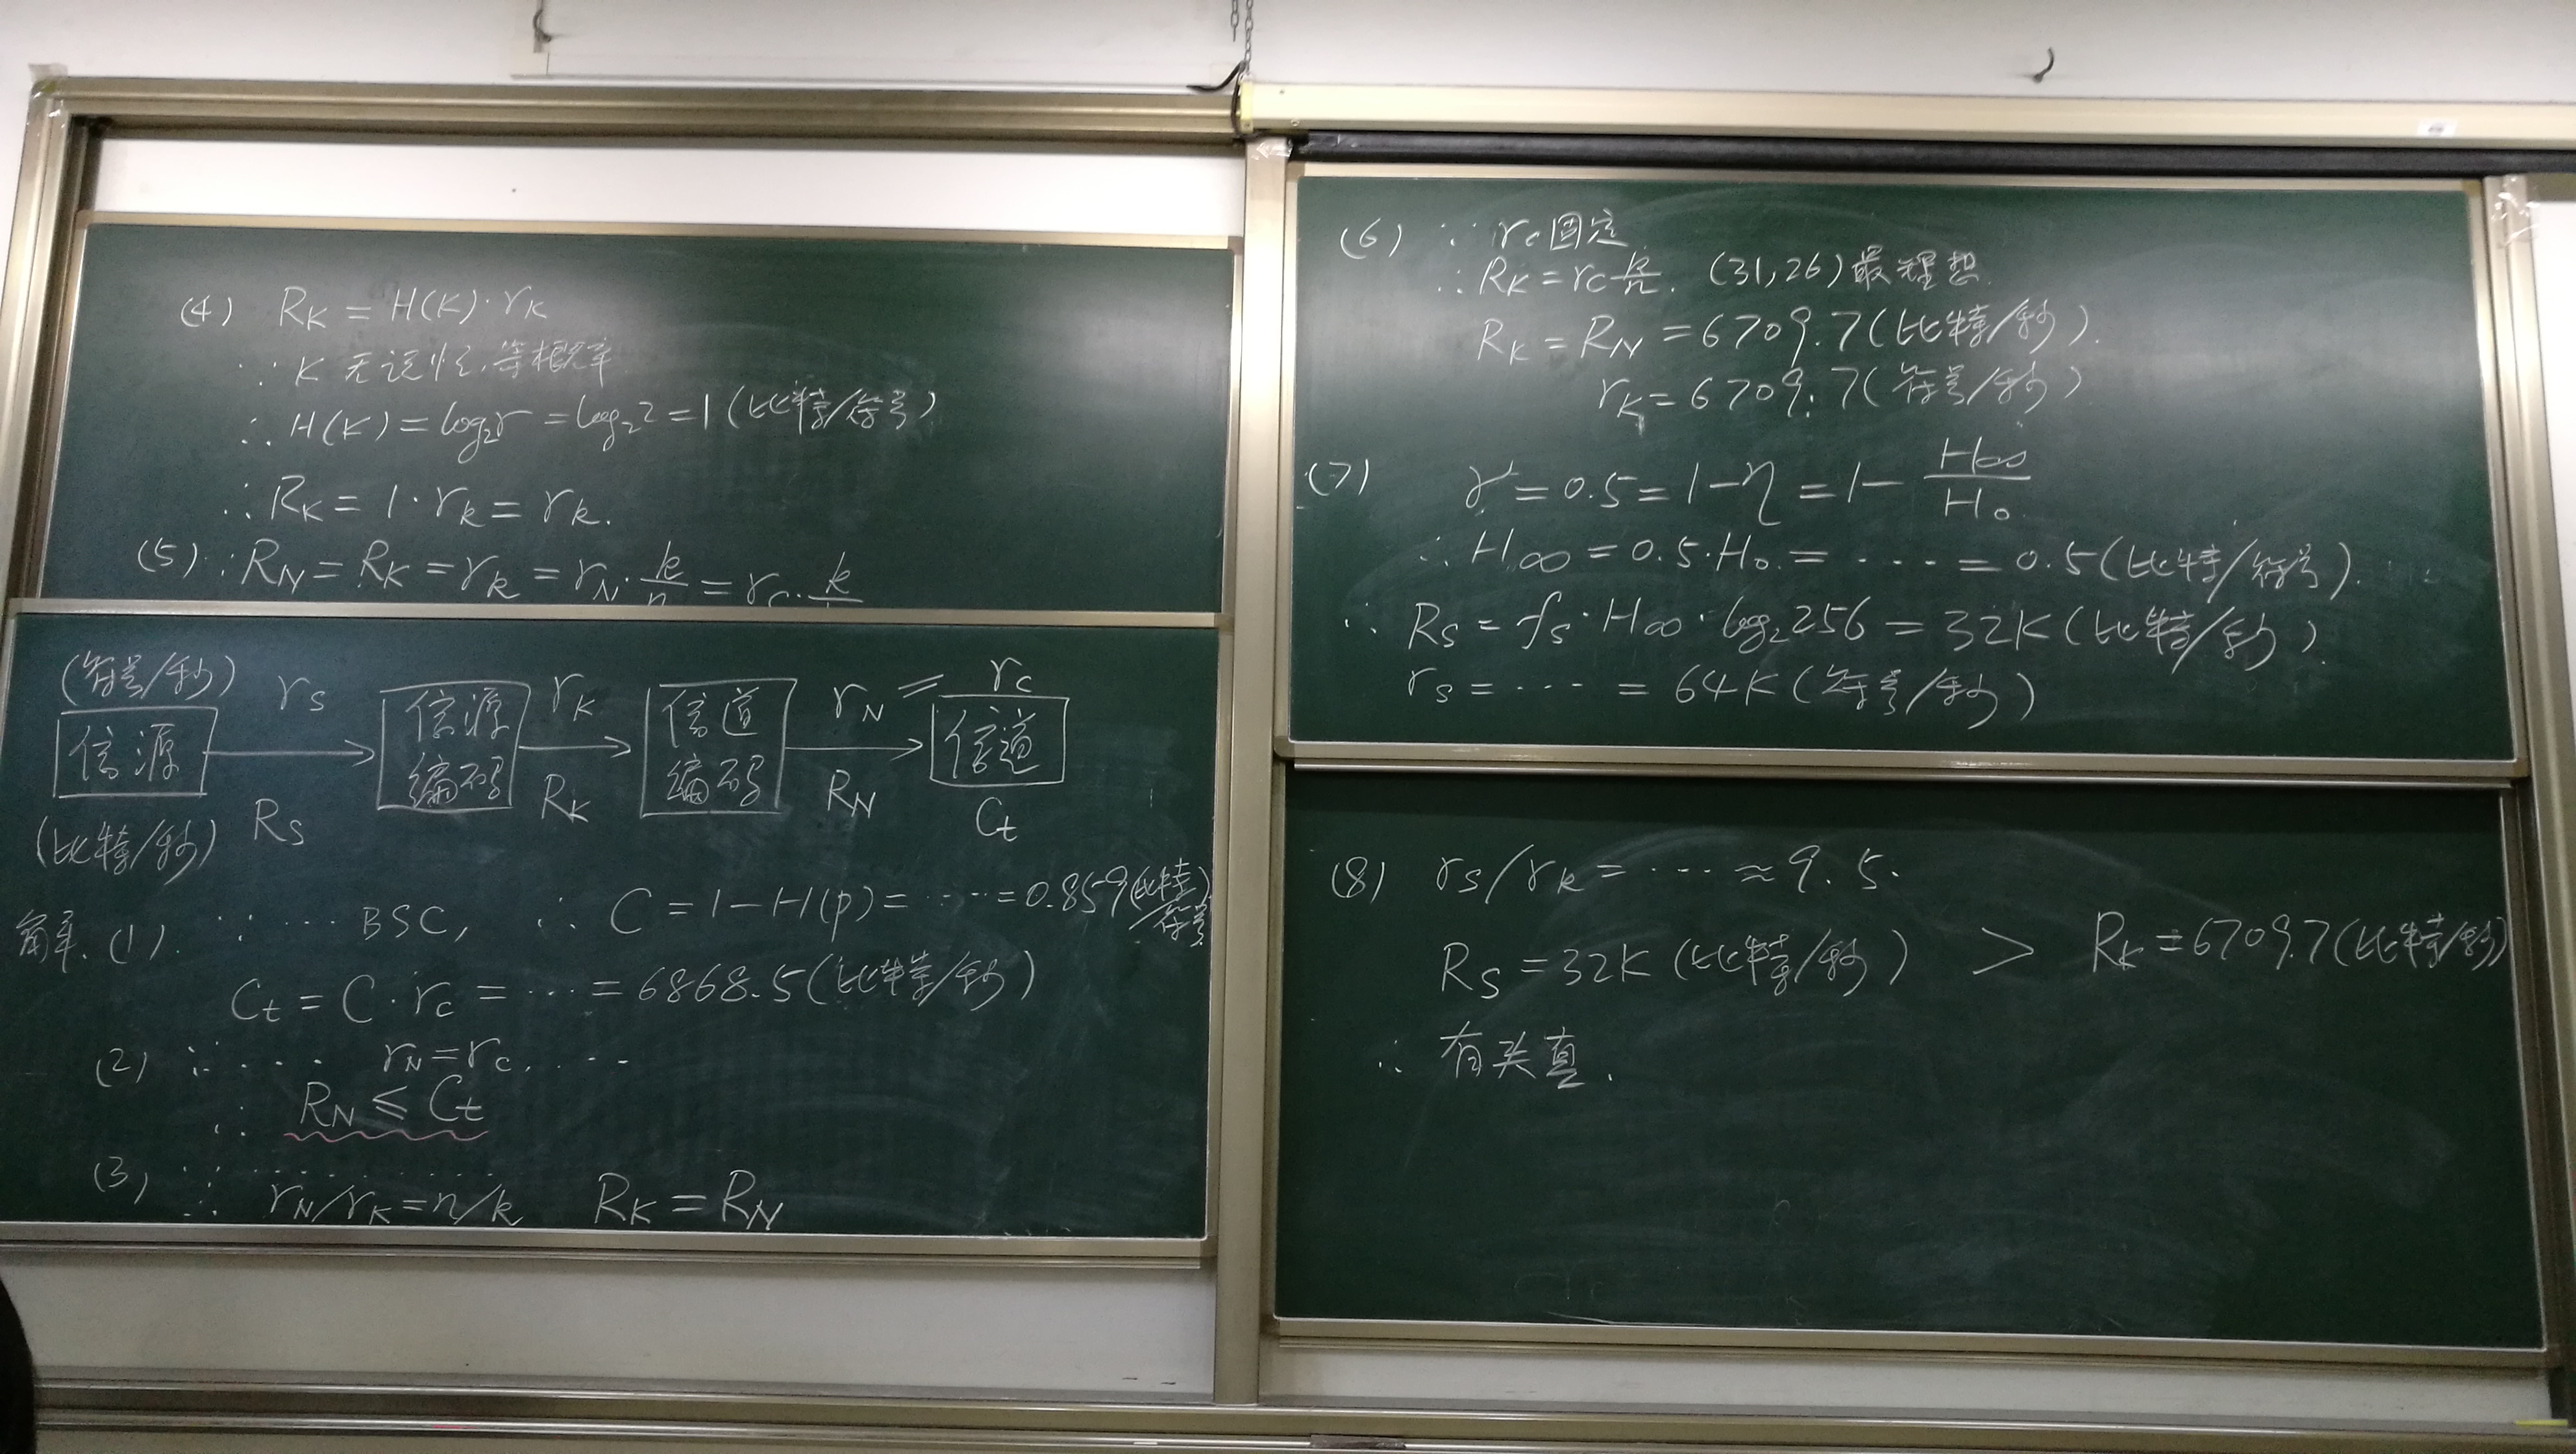 (4) R_K = H(K)·r_K
∵ K 无记忆,等概率
∴ H(K) = log₂r = log₂2 = 1 (比特/符号)
∴ R_K = 1·r_k = r_k.
(5) ∵ R_N = R_K = r_k = r_N·k/n = r_c·k/
(符号/秒) r_S r_K r_N = r_c
信源 信源编码 信道编码 信道
R_S R_K R_N C_t
(比特/秒)
解.(1). ∵ ··· BSC, ∴ C = 1-H(p) = ···· = 0.859(比特/符号)
C_t = C·r_c = ··· = 6868.5(比特/秒)
(2) ∵ ···· r_N = r_c. ···
∴ R_N ≤ C_t
(3) ∵ ··········
∴ r_N/r_K = n/k R_K = R_N
(6) ∵ r_c固定.
∴ R_K = r_c k/n. (31,26)最理想.
R_K = R_N = 6709.7(比特/秒).
r_K = 6709.7(符号/秒)
(7) γ = 0.5 = 1-η = 1- H∞/H₀
∴ H∞ = 0.5·H₀ = ···· = 0.5(比特/符号).
∴ R_S = f_s·H∞·log₂256 = 32K(比特/秒).
r_S = ···· = 64K(符号/秒)
(8) r_S/r_k = ···· ≈ 9.5.
R_S = 32K(比特/秒) > R_K = 6709.7(比特/秒)
∴ 有失真.